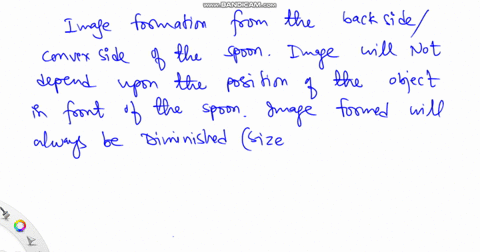 WWW.BANDICAM.COM
Image formation from the back side/
convex side of the spoon. Image will Not
depend upon the position of the object
in front of the spoon. Image formed will
always be Diminished (size